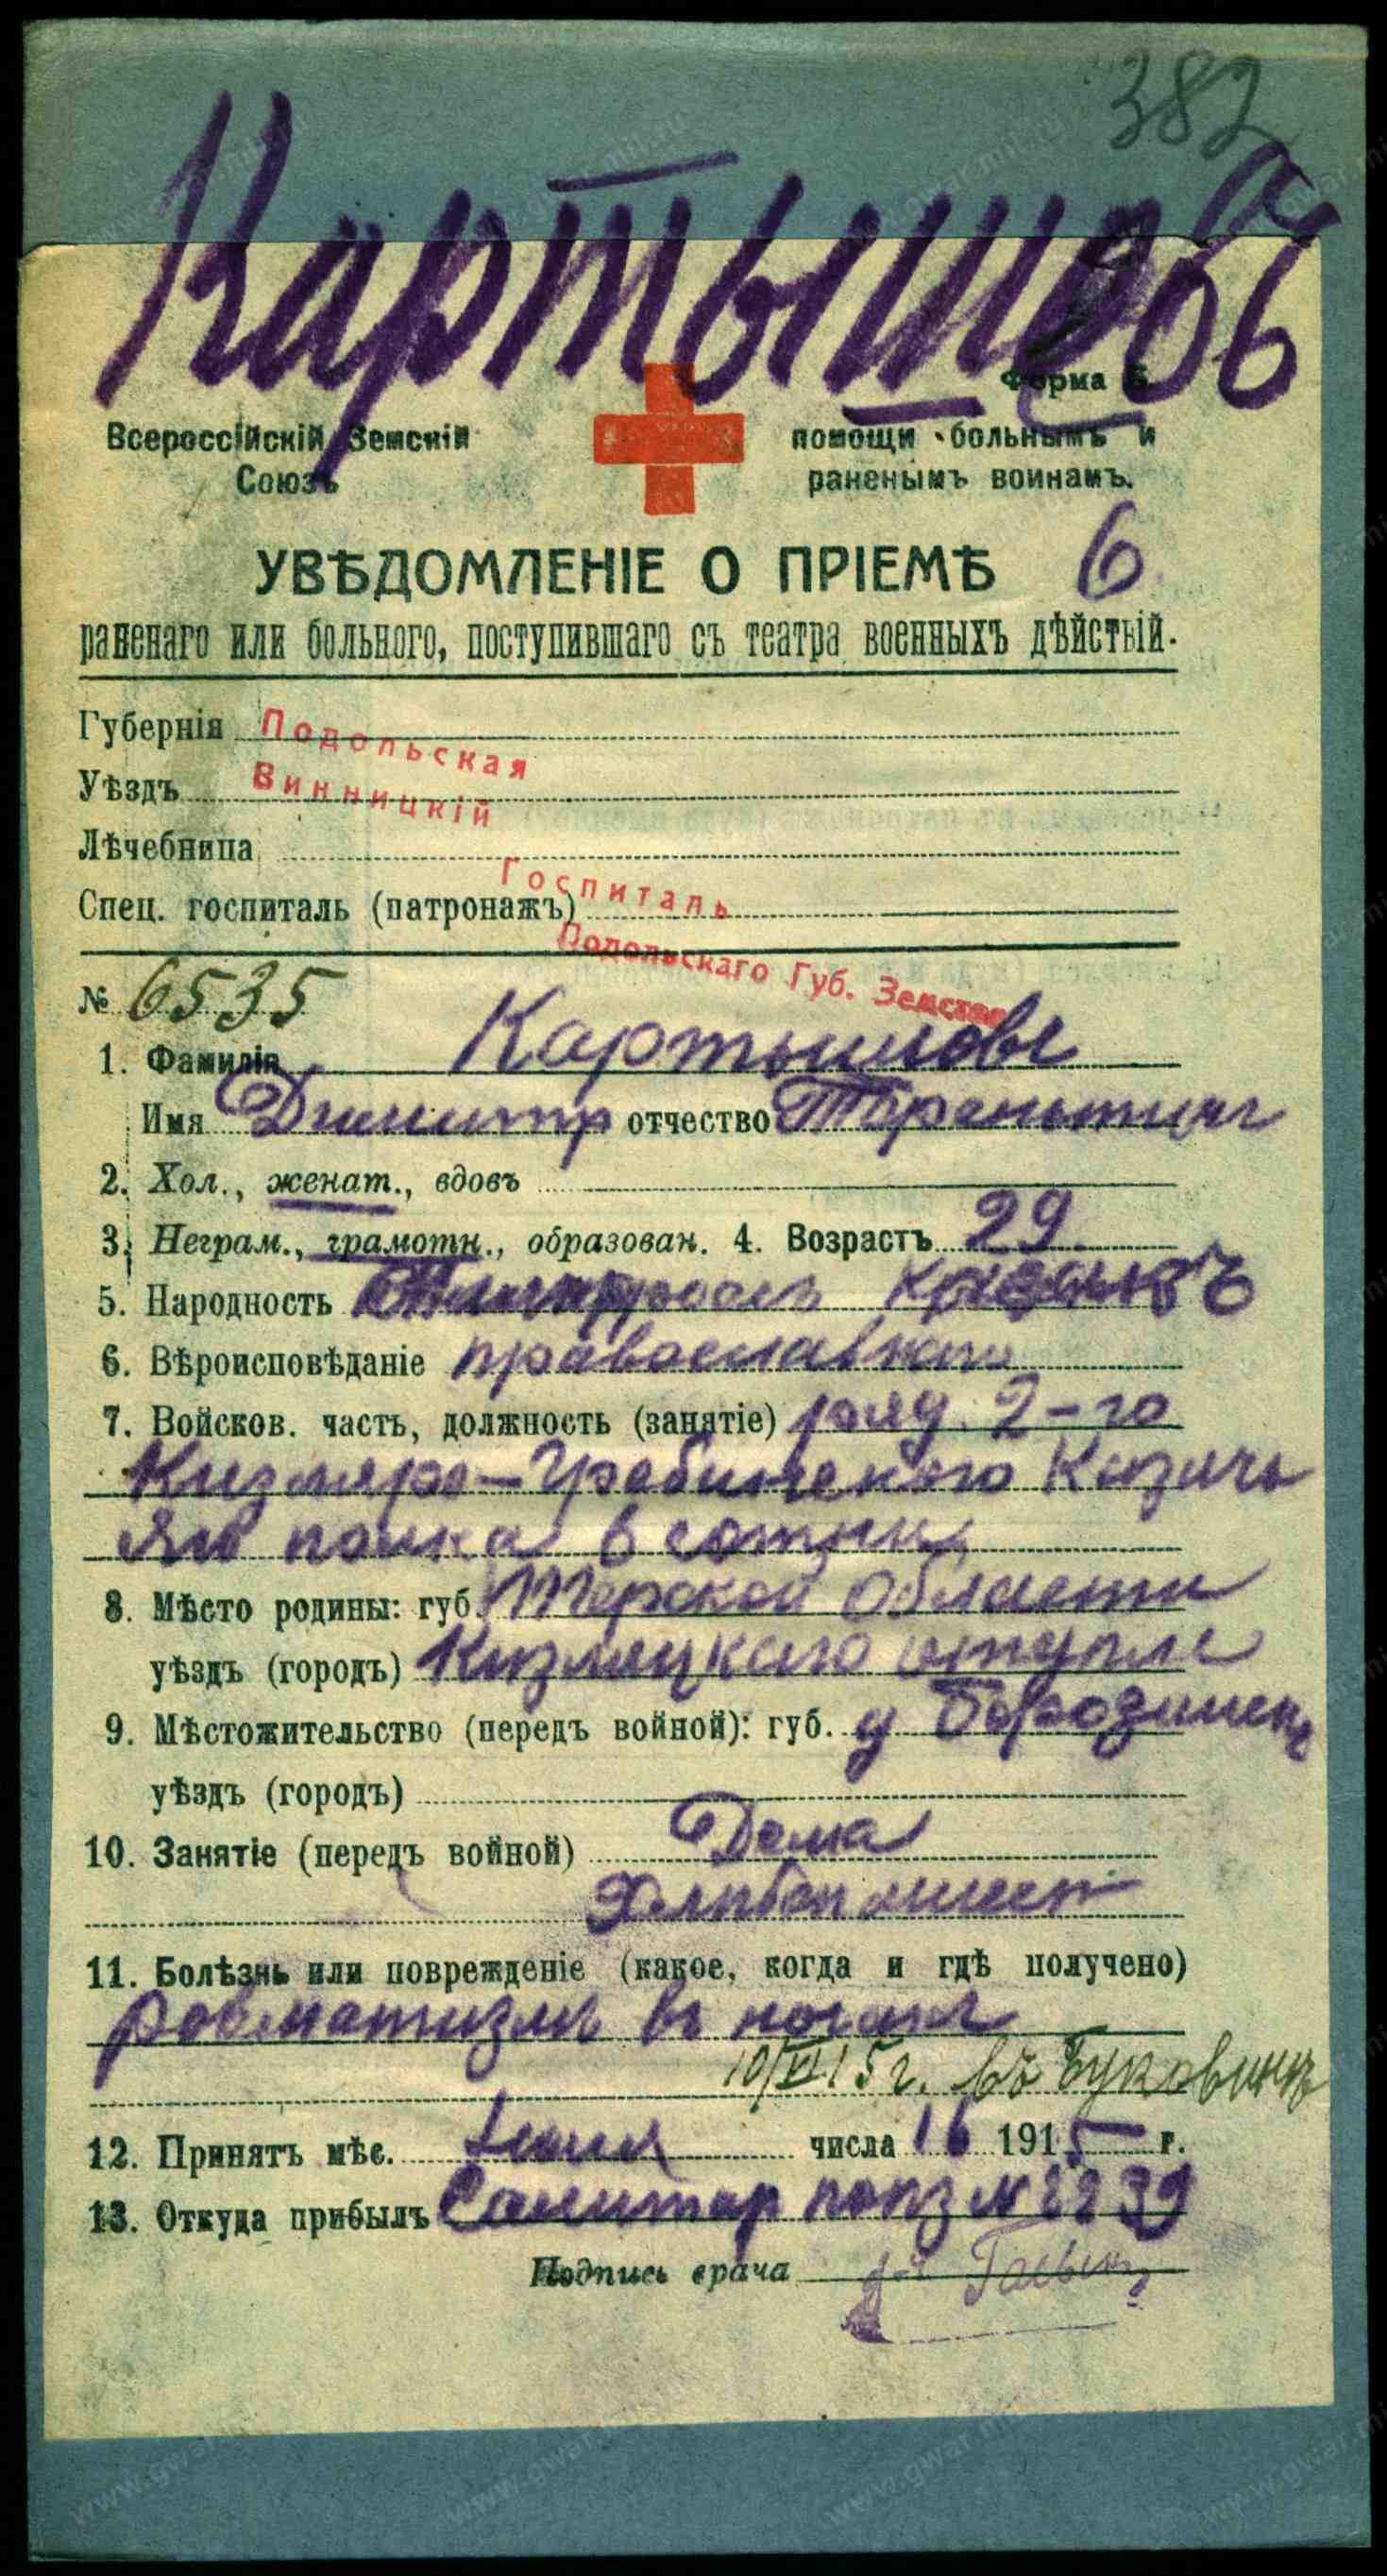 382
Картышовъ
Форма
Всероссійскій Земскій Союзъ
помощи больнымъ и раненымъ воинамъ.
УВѢДОМЛЕНІЕ О ПРІЕМѢ 6
раненаго или больного, поступившаго съ театра военныхъ дѣйствій.
Губернія Подольская
Уѣздъ Винницкій
Лѣчебница
Спец. госпиталь (патронажъ) Госпиталь
Подольскаго Губ. Земства
№ 6535
1. Фамилія Картышовъ
Имя Димитр отчество
2. Хол., женат., вдовъ
3. Неграм., грамотн., образован. 4. Возрастъ 29
5. Народность
6. Вѣроисповѣданіе православнаго
7. Войсков. часть, должность (занятіе) ряд. 2-го
Кизляро-Гребинского Казачь
яго полка 6 сотни
8. Мѣсто родины: губ. Терской Области
уѣздъ (городъ)
9. Мѣстожительство (передъ войной): губ.
уѣздъ (городъ)
10. Занятіе (передъ войной) Дома
11. Болѣзнь или поврежденіе (какое, когда и гдѣ получено)
ровматизмъ въ ногахъ
10/VI 15 г. въ Буковинѣ
12. Принятъ мѣс. Іюня числа 16 1915 г.
13. Откуда прибылъ Санитар №
Подпись врача